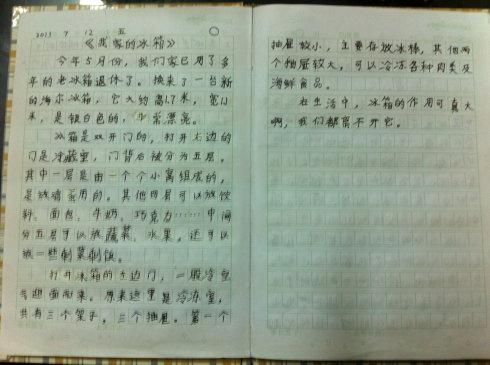 2013 7 12 五
《我家的冰箱》
今年5月份，我们家已用了多
年的老冰箱退休了。换来了一台新
的海尔冰箱，它大约高1.7米，宽1小
米，是银白色的，非常漂亮。
冰箱是双开门的，打开右边的
门是冷藏室，门背后被分为五层。
其中一层是由一个个小窝组成的，
是放鸡蛋用的。其他四层可以放饮
料、面包、牛奶、巧克力……中间
分五层可以放蔬菜、水果，还可以
放一些剩菜剩饭。
打开冰箱的左边门，一股冷空
气迎面而来。原来这里是冷冻室，
共有三个架子，三个抽屉。第一个
抽屉较小，主要存放冰棒，其他两
个抽屉较大，可以冷冻各种肉类及
海鲜食品。
在生活中，冰箱的作用可真大
啊，我们都离不开它。